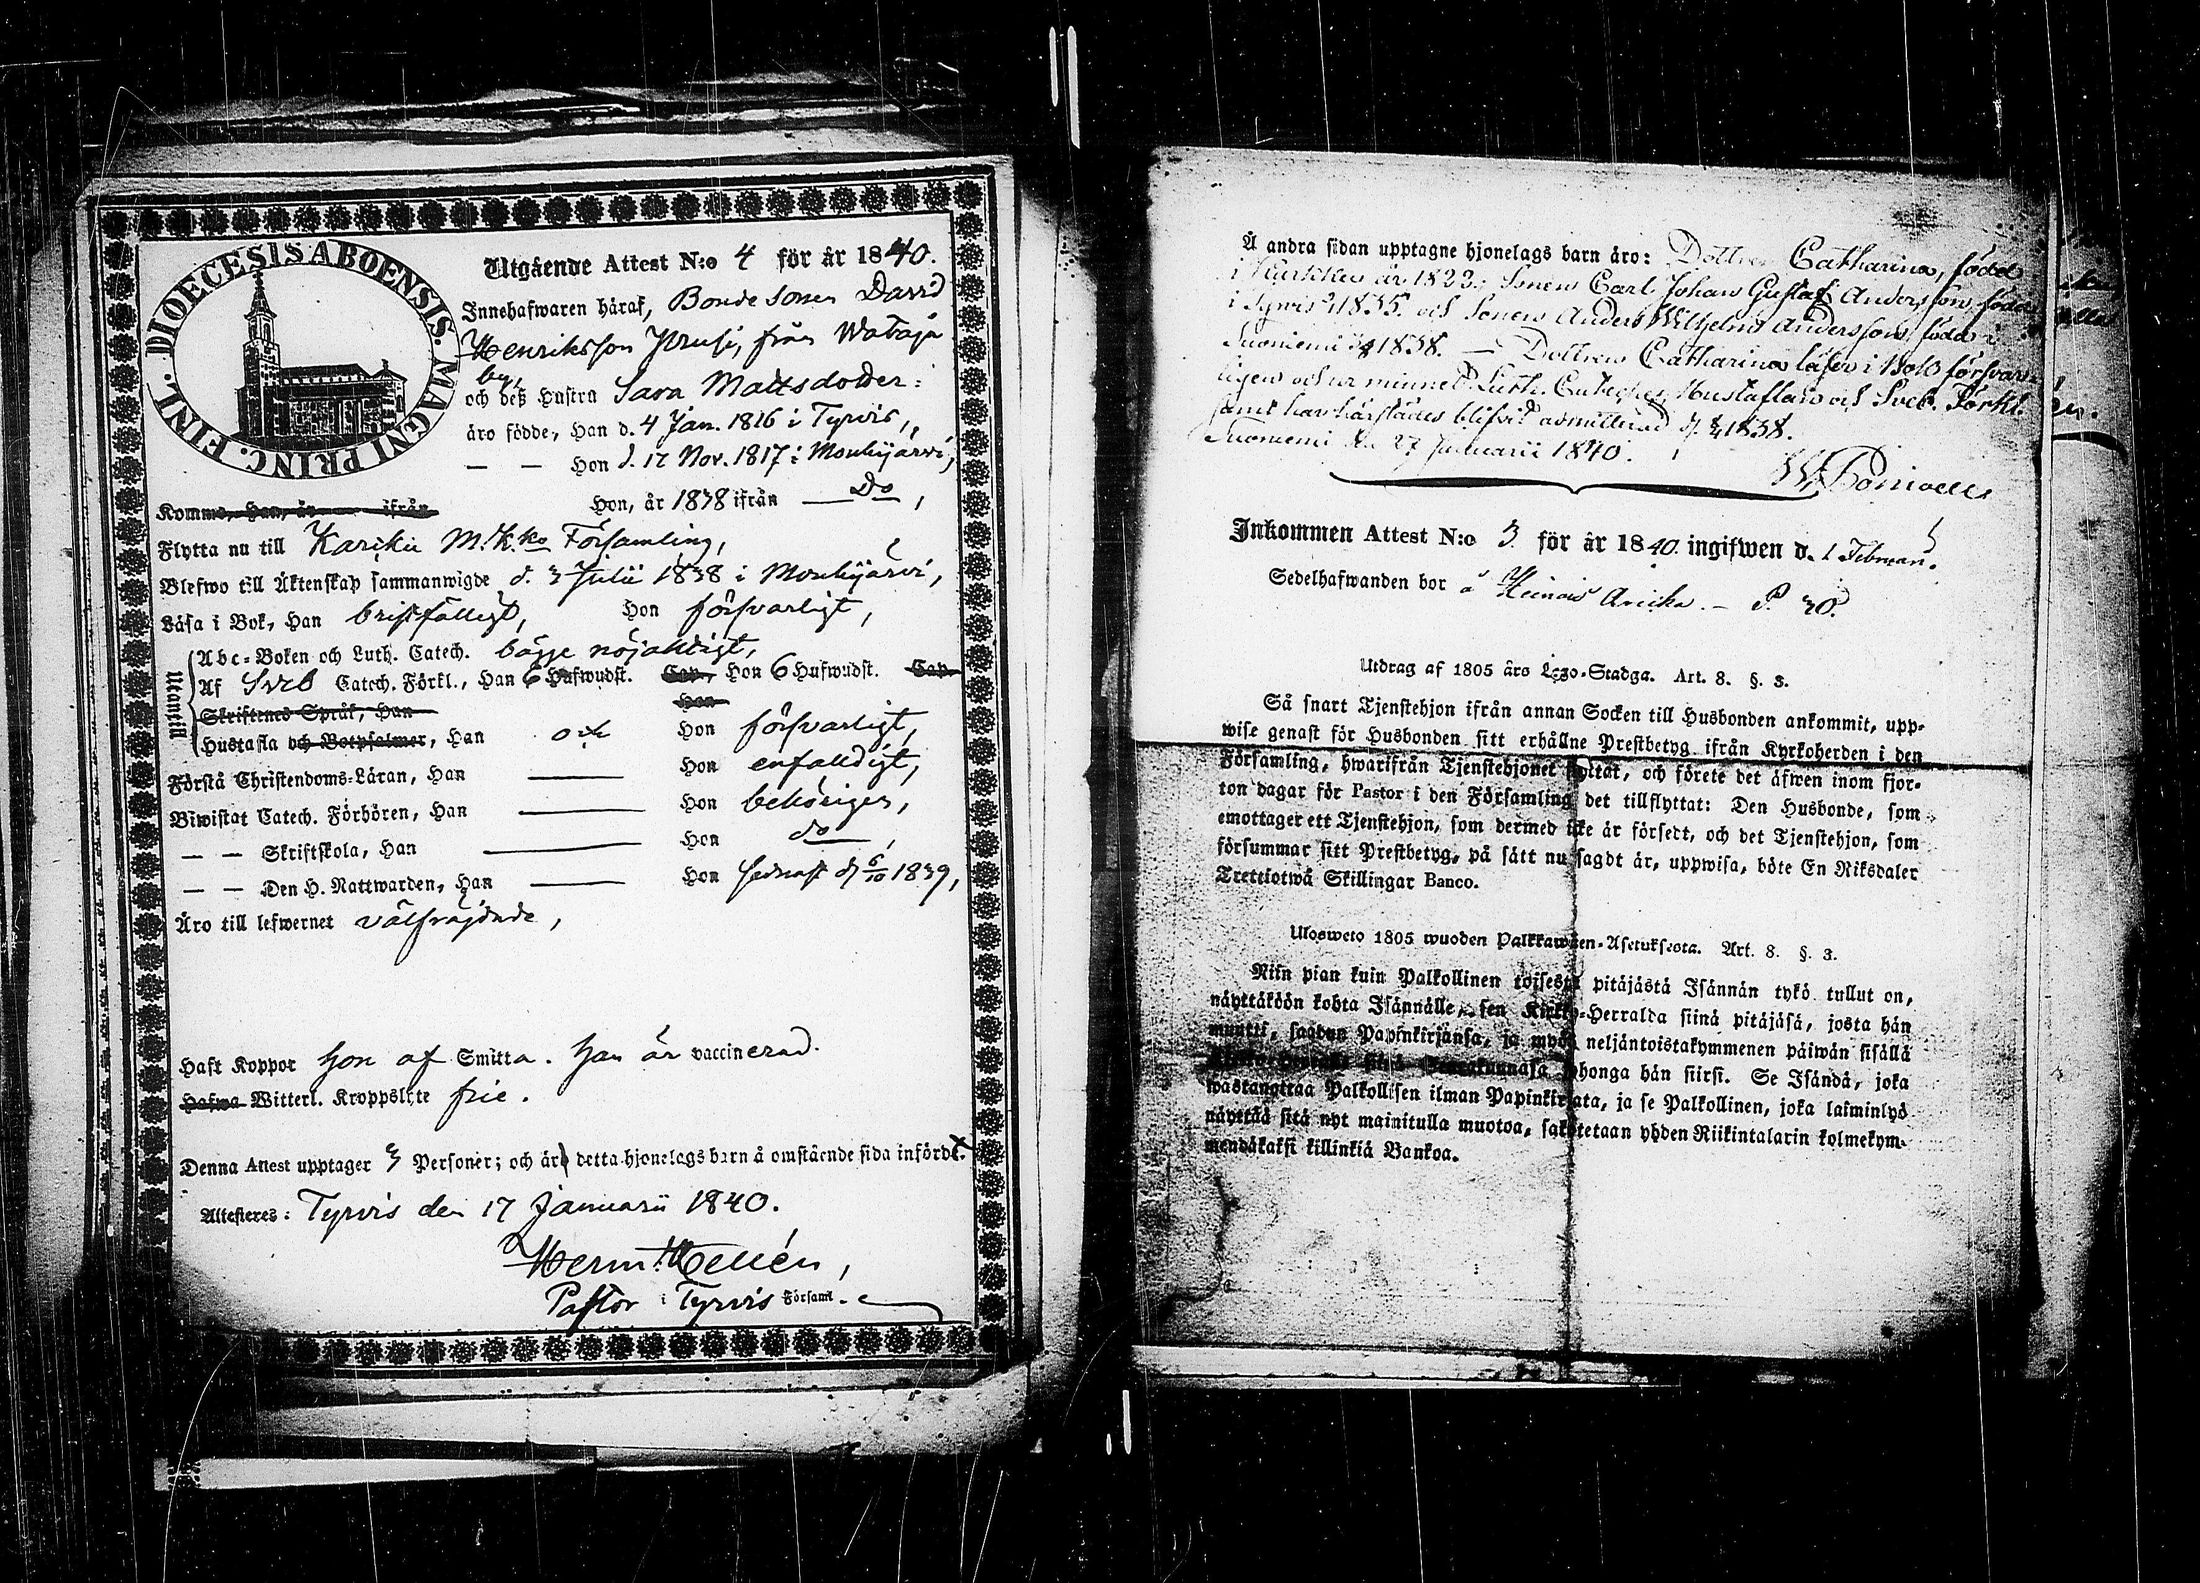 DIOECESIS ABOENSIS. MAGNI PRINC. FINL.
Utgående Attest N:o 4 för år 1840.
Innehafwaren häraf, Bonde Sonen David
Henriksson, från
by,
och deß Hustru Sara Mattsdotter:
äro födde, Han d. 4 Jan. 1816 i Tyrvis,
— — Hon d. 12 Nov. 1817 i Mouhijärvi,
Komme, Han, år ifrån Hon, år 1838 ifrån Do,
Flytta nu till Karkku M.K.ko Församling,
Blefwo till Äktenskap sammanwigde d. 3 Julii 1838 i Mouhijärvi,
Läsa i Bok, Han bristfälligt, Hon försvarligt,
Utantill
Abc-Boken och Luth. Catech. bägge nöjaktigt,
Af Sveb Catech. Förkl., Han 6 Hufwudst. Cap., Hon 6 Hufwudst. Cap.
Skriftenes Språk, Han Hon
Hustafla och Botpsalmer, Han och Hon försvarligt,
Förstå Christendoms-Läran, Han — Hon enfaldigt,
Biwistat Catech. Förhören, Han — Hon behörigen,
— — Skriftskola, Han — Hon do,
— — Den H. Nattwarden, Han — Hon sednast d. 6/10 1839,
Äro till lefwernet välfräjdade,
Haft Koppor hon af Smitta. han är vaccinerad.
Hafwa Witterl. Kroppslyte frie.
Denna Attest upptager 3 Personer; och äro detta hjonelags barn å omstående sida införde.
Attesteres: Tyrvis den 17 Januarii 1840.
Herm. Hellén,
Pastor i Tyrvis Församl.
Å andra sidan upptagne hjonelags barn äro: Dottren Catharina, född
i år 1822; Sonen Carl Johan Gustaf Andersson, född
i Tyrvis 1835. och Sonen Anders Wilhelm Andersson, född i
Suoniemi 1838. — Dottren Catharina läser i Bok försvar-
ligen och ur minnet Luth. Cateches, Hustaflan och Sveb. Förkl.
samt har härstädes blifvit admitterad 1838.
Suoniemi den 27 Januarii 1840.
Inkommen Attest N:o 3. för år 1840. ingifwen d. 1 Februari.
Sedelhafwanden bor å Heinois P. 30.
Utdrag af 1805 års Lego-Stadga. Art. 8. §. 3.
Så snart Tjenstehjon ifrån annan Socken till Husbonden ankommit, upp-
wise genast för Husbonden sitt erhållne Prestbetyg ifrån Kyrkoherden i den
Församling, hwarifrån Tjenstehjonet flyttat, och förete det äfwen inom fjor-
ton dagar för Pastor i den Församling det tillflyttat: Den Husbonde, som
emottager ett Tjenstehjon, som dermed icke är försedt, och det Tjenstehjon, som
försummar sitt Prestbetyg, på sätt nu sagdt är, uppwisa, böte En Riksdaler
Trettiotwå Skillingar Banco.
Ulosweto 1805 wuoden Palkkawäen-Asetuksesta. Art. 8. §. 3.
Niin pian kuin Palkollinen toisesta pitäjästä Isännän tykö tullut on,
näyttäköön kohta Isännälle, sen Kirkko-Herralda siinä pitäjäsä, josta hän
muutti, saadun Papinkirjansa, ja myös neljäntoistakymmenen päiwän sisällä
Kirkko-Herralle siinä Seurakunnasa johonga hän siirsi. Se Isändä, joka
wastanottaa Palkollisen ilman Papinkirjata, ja se Palkollinen, joka laiminlyö
näyttää sitä nyt mainitulla muotoa, sakotetaan yhden Riikintalarin kolmekym-
mendäkaksi killinkiä Bankoa.